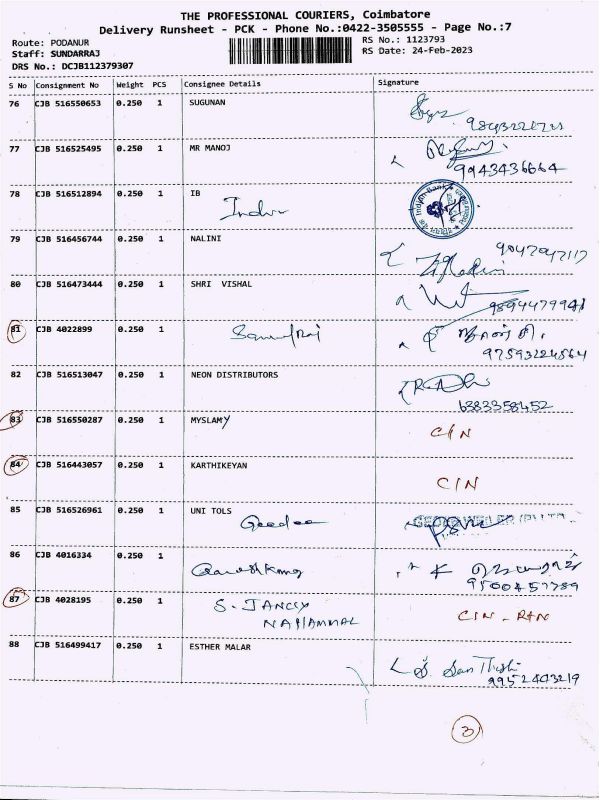 THE PROFESSIONAL COURIERS, Coimbatore
Delivery Runsheet - PCK - Phone No.:0422-3505555 - Page No.:7
Route: PODANUR RS No.: 1123793
Staff: SUNDARRAJ RS Date: 24-Feb-2023
DRS No.: DCJB112379307
S No Consignment No Weight PCS Consignee Details Signature
76 CJB 516550653 0.250 1 SUGUNAN
77 CJB 516525495 0.250 1 MR MANOJ
9943436664
78 CJB 516512894 0.250 1 IB
Indian Bank
79 CJB 516456744 0.250 1 NALINI
9047047117
80 CJB 516473444 0.250 1 SHRI VISHAL
9894479941
81 CJB 4022899 0.250 1
97593224564
82 CJB 516513047 0.250 1 NEON DISTRIBUTORS
6383358452
83 CJB 516550287 0.250 1 MYSLAMY
C/N
84 CJB 516443057 0.250 1 KARTHIKEYAN
C/N
85 CJB 516526961 0.250 1 UNI TOLS
Geedee
86 CJB 4016334 0.250 1
9500457789
87 CJB 4028195 0.250 1 S. JANCY
NALLAMMAL
C/N - RTN
88 CJB 516499417 0.250 1 ESTHER MALAR
9952443219
3